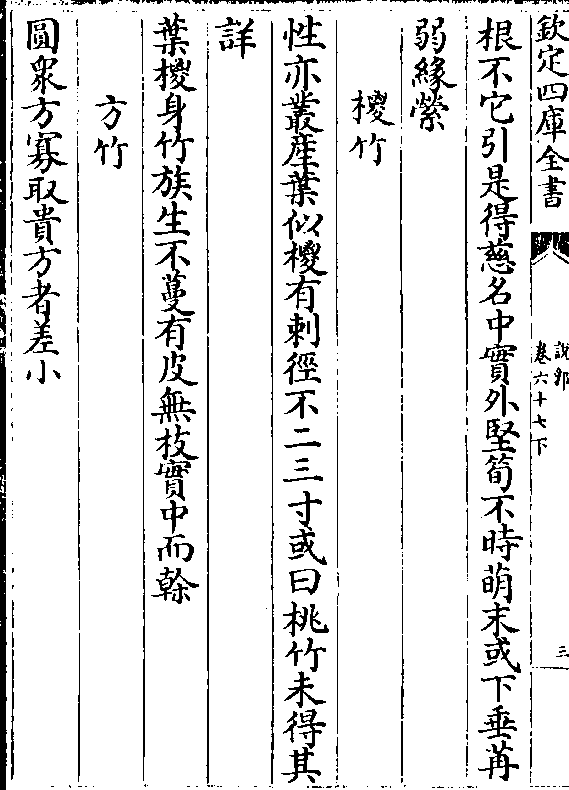 欽定四庫全書
說郛
卷六十七下
三
根不它引是得慈名中實外堅筍不時萌末或下垂苒
弱緣縈
椶竹
性亦叢產葉似椶有刺徑不二三寸或曰桃竹未得其
詳
葉椶身竹族生不蔓有皮無枝實中而榦
方竹
圓衆方寡取貴方者差小